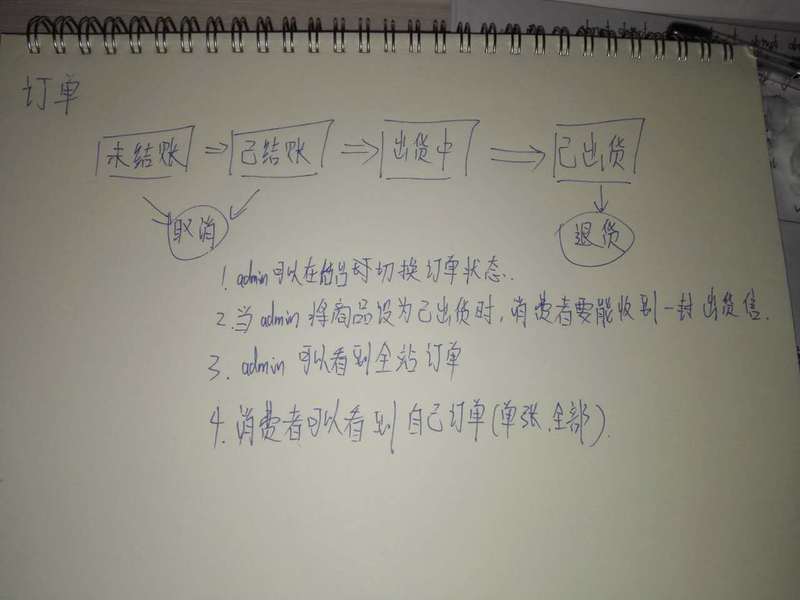 订单
未结账 ⇒ 已结账 ⇒ 出货中 ⇒ 已出货
取消 退货
1. admin可以在 时切换订单状态.
2. 当admin将商品设为已出货时, 消费者要能收到一封出货信.
3. admin可以看到全站订单
4. 消费者可以看到自己订单(单张.全部).